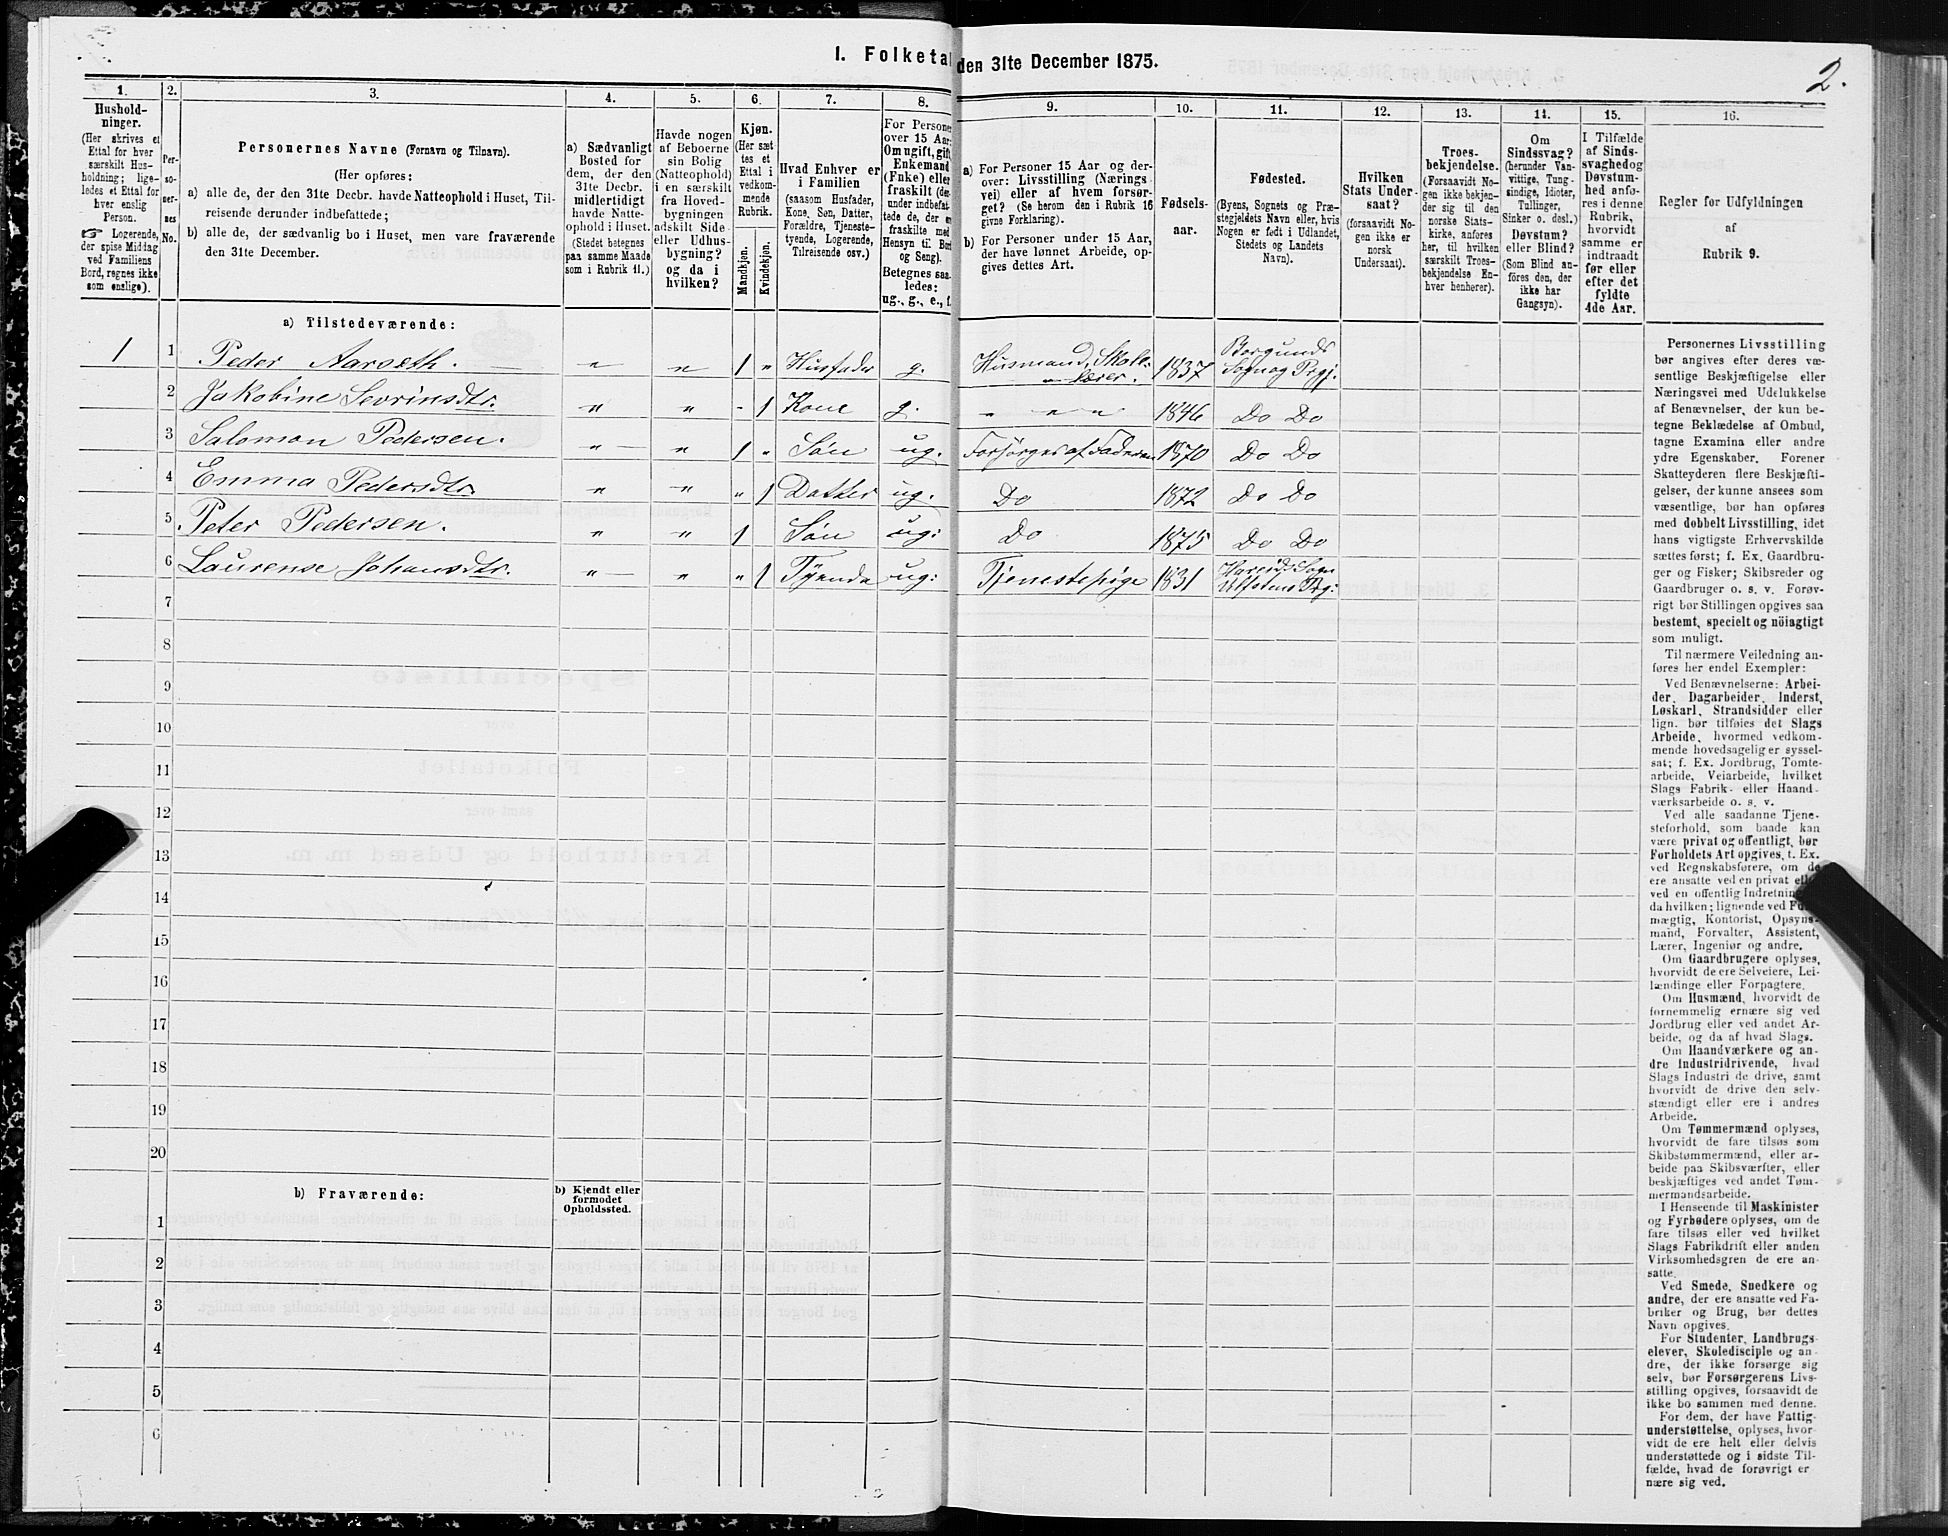 I. Folketal den 31te December 1875.
2.
1.
Hushold-
ninger.
(Her skrives et
Ettal for hver
særskilt Hus-
holdning; lige-
ledes et Ettal for
hver enslig
Person.
☞ Logerende,
der spise Middag
ved Familiens
Bord, regnes ikke
som enslige).
2.
Per-
so-
ner-
nes
No.
3.
Personernes Navne (Fornavn og Tilnavn).
(Her opføres:
a) alle de, der den 31te Decbr. havde Natteophold i Huset, Til-
reisende derunder indbefattede;
b) alle de, der sædvanlig bo i Huset, men vare fraværende
den 31te December.
4.
a) Sædvanligt
Bosted for
dem, der den
31te Decbr.
midlertidigt
havde Natte-
ophold i Huset.
(Stedet betegnes
paa samme Maade
som i Rubrik 11.)
5.
Havde nogen
af Beboerne
sin Bolig
(Natteophold)
i en særskilt
fra Hoved-
bygningen
adskilt Side-
eller Udhus-
bygning?
og da i
hvilken?
6.
Kjøn.
(Her sæt-
tes et
Ettal i
vedkom-
mende
Rubrik.
Mandkjøn.
Kvindekjøn.
7.
Hvad Enhver er
i Familien
(saasom Husfader,
Kone, Søn, Datter,
Forældre, Tjeneste-
tyende, Logerende,
Tilreisende osv.)
8.
For Personer
over 15 Aar:
Om ugift, gift,
Enkemand
(Enke) eller
fraskilt (der-
under indbefat-
tede de, der er
fraskilte med
Hensyn til Bord
og Seng).
Betegnes saa-
ledes:
ug., g., e., f.
9.
a) For Personer 15 Aar og der-
over: Livsstilling (Nærings-
vei) eller af hvem forsør-
get? (Se herom den i Rubrik 16
givne Forklaring).
b) For Personer under 15 Aar,
der have lønnet Arbeide, op-
gives dettes Art.
10.
Fødsels-
aar.
11.
Fødested.
(Byens, Sognets og Præ-
stegjeldets Navn eller, hvis
Nogen er født i Udlandet,
Stedets og Landets
Navn).
12.
Hvilken
Stats Under-
saat?
(forsaavidt No-
gen ikke er
norsk
Undersaat).
13.
Troes-
bekjendelse.
(Forsaavidt No-
gen ikke bekjen-
der sig til den
norske Stats-
kirke, anføres
her, til hvilken
særskilt Troes-
bekjendelse En-
hver henhører).
14.
Om
Sindssvag?
(herunder Van-
vittige, Tung-
sindige, Idioter,
Tullinger,
Sinker o. desl.)
Døvstum?
eller Blind?
(Som Blind an-
føres den, der
ikke har
Gangsyn).
15.
I Tilfælde
af Sinds-
svaghed og
Døvstum-
hed anfø-
res i denne
Rubrik,
hvorvidt
samme er
indtraadt
før eller
efter det
fyldte
4de Aar.
16.
Regler for Udfyldningen
af
Rubrik 9.
a) Tilstedeværende:
1 1 Peder Aarseth. " " 1 " Husfader g. Husmand, Skole- lærer. 1837 Borgunds Sogn og Prgj.
2 Jakobine Sevrinsdtr. " " - 1 Kone g. " " " 1846 Do Do
3 Salomon Pedersen. " " 1 " Søn ug. Forsørges af Faderen 1870 Do Do
4 Emma Pedersdtr. " " " 1 Datter ug. Do 1872 Do Do
5 Peter Pedersen. " " 1 Søn ug: Do 1875 Do Do
6 Laurense Johansdtr. " " " 1 Tyende ug: Tjenestepige 1831 Hareids Sogn Ulfstens Prg:
7
8
9
10
11
12
13
14
15
16
17
18
19
20
b) Fraværende:
b) Kjendt eller
formodet
Opholdssted.
1
2
3
4
5
6
Personernes Livsstilling
bør angives efter deres væ-
sentlige Beskjæftigelse eller
Næringsvei med Udelukkelse
af Benævnelser, der kun be-
tegne Beklædelse af Ombud,
tagne Examina eller andre
ydre Egenskaber. Forener
Skatteyderen flere Beskjæfti-
gelser, der kunne ansees som
væsentlige, bør han opføres
med dobbelt Livsstilling, idet
hans vigtigste Erhvervskilde
sættes først; f. Ex. Gaardbru-
ger og Fisker; Skibsreder og
Gaardbruger o. s. v. Forøv-
rigt bør Stillingen opgives saa
bestemt, specielt og nöiagtigt
som muligt.
Til nærmere Veiledning an-
føres her endel Exempler:
Ved Benævnelserne: Arbei-
der, Dagarbeider, Inderst,
Løskarl, Strandsidder eller
lign. bør tilføies det Slags
Arbeide, hvormed vedkom-
mende hovedsagelig er syssel-
sat; f. Ex. Jordbrug, Tomte-
arbeide, Veiarbeide, hvilket
Slags Fabrik- eller Haand-
værksarbeide o. s. v.
Ved alle saadanne Tjene-
steforhold, som baade kan
være privat og offentligt, bør
Forholdets Art opgives, f. Ex.
ved Regnskabsførere, om de
ere ansatte ved en privat eller
ved en offentlig Indretning og
da hvilken; lignende ved Fuld-
mægtig, Kontorist, Opsyns-
mand, Forvalter, Assistent,
Lærer, Ingeniør og andre.
Om Gaardbrugere oplyses,
hvorvidt de ere Selveiere, Lei-
lændinge eller Forpagtere.
Om Husmænd, hvorvidt de
fornemmelig ernære sig ved
Jordbrug eller ved andet Ar-
beide, og da af hvad Slags.
Om Haandværkere og an-
dre Industridrivende, hvad
Slags Industri de drive, samt
hvorvidt de drive den selv-
stændigt eller ere i andres
Arbeide.
Om Tømmermænd oplyses,
hvorvidt de fare tilsøs som
Skibstømmermænd, eller ar-
beide paa Skibsværfter, eller
beskjæftiges ved andet Tøm-
mermandsarbeide.
I Henseende til Maskinister
og Fyrbødere oplyses, om de
fare tilsøs eller ved hvilket
Slags Fabrikdrift eller anden
Virksomhedsgren de ere an-
satte.
Ved Smede, Snedkere og
andre, der ere ansatte ved Fa-
briker og Brug, bør dettes
Navn opgives.
For Studenter, Landbrugs-
elever, Skoledisciple og an-
dre, der ikke forsørge sig
selv, bør Forsørgerens Livs-
stilling opgives, forsaavidt de
ikke bo sammen med denne.
For dem, der have Fattig-
understøttelse, oplyses, hvor-
vidt de ere helt eller delvis
understøttede og i sidste Til-
fælde, hvad de forøvrigt er-
nære sig ved.